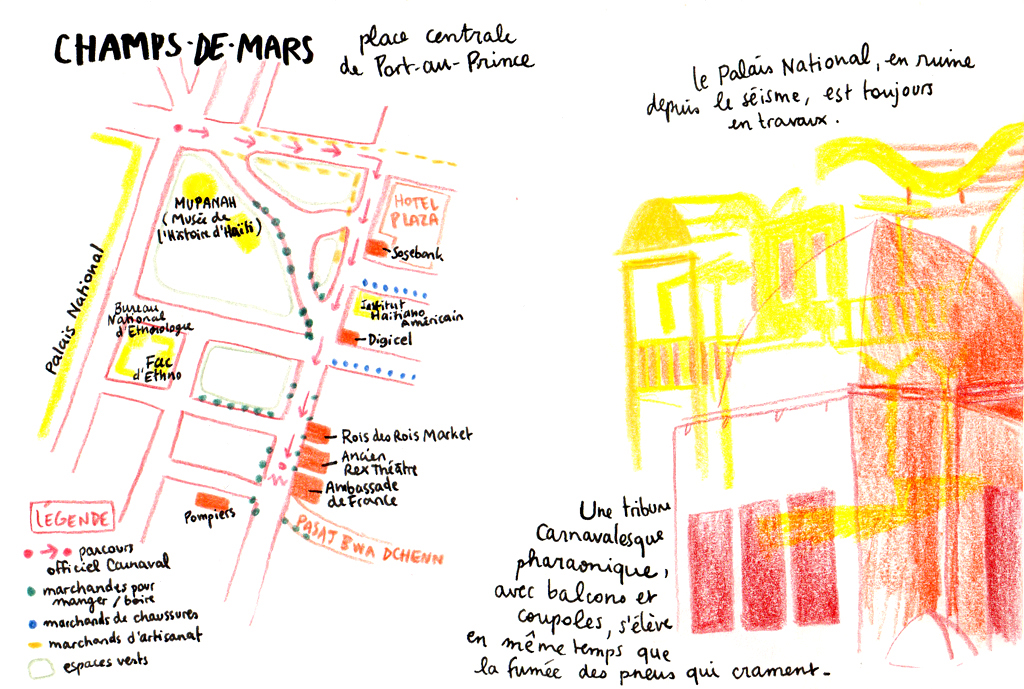 CHAMPS-DE-MARS
place centrale
de Port-au-Prince
MUPANAH
(Musée de
l'Histoire d'Haïti)
HOTEL
PLAZA
Sogebank
Institut
Haïtiano
Américain
Digicel
Palais National
Bureau
National
d'Ethnologie
Fac
d'Ethno
Rois des Rois Market
Ancien
Rex Théâtre
Ambassade
de France
Pompiers
PASAJ BWA DCHENN
LÉGENDE
parcours
officiel Carnaval
marchandes pour
manger / boire
marchands de chaussures
marchands d'artisanat
espaces verts
Le Palais National, en ruine
depuis le séisme, est toujours
en travaux.
Une tribune
Carnavalesque
pharaonique,
avec balcons et
coupoles, s'élève
en même temps que
la fumée des pneus qui crament.